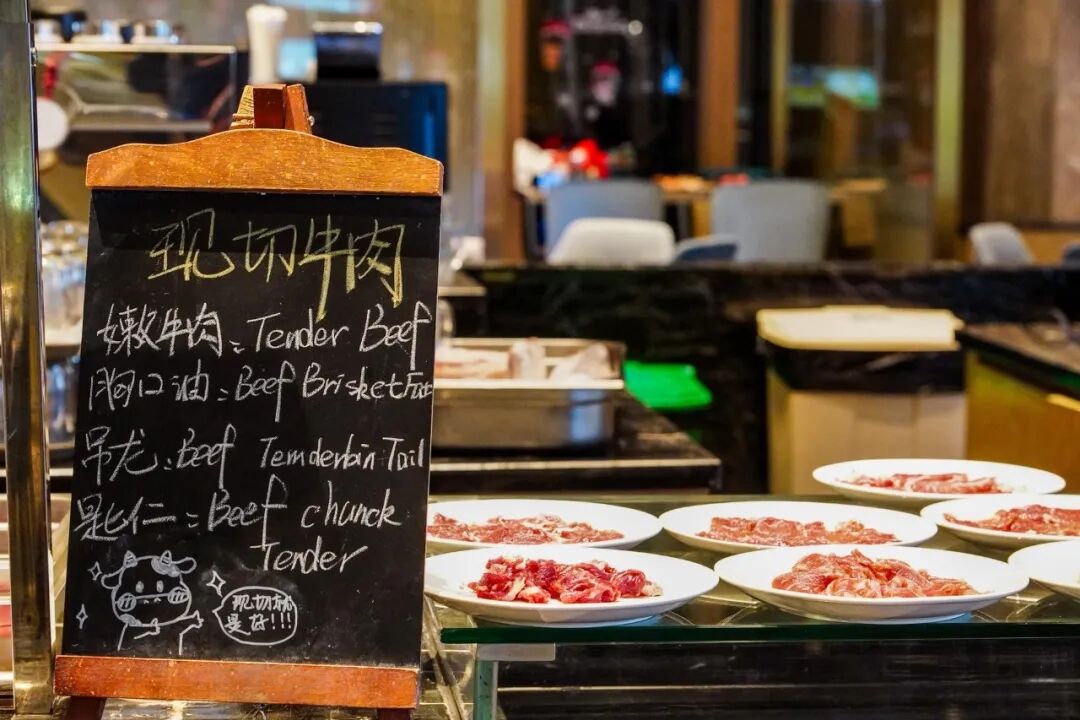 现切牛肉
嫩牛肉:Tender Beef
胸口油:Beef Brisket Fat
吊龙:Beef Temderbin Tail
匙仁:Beef chunck
Tender
现切就
是好!!!